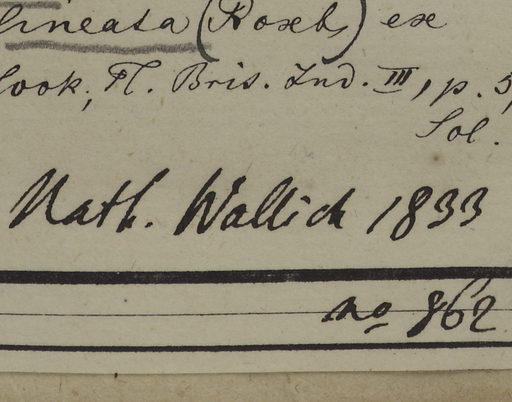 lineata (Roxb.) ex
Hook, Fl. Bris. Ind. III, p. 5
Sol.
Nath. Wallich 1833
no 862